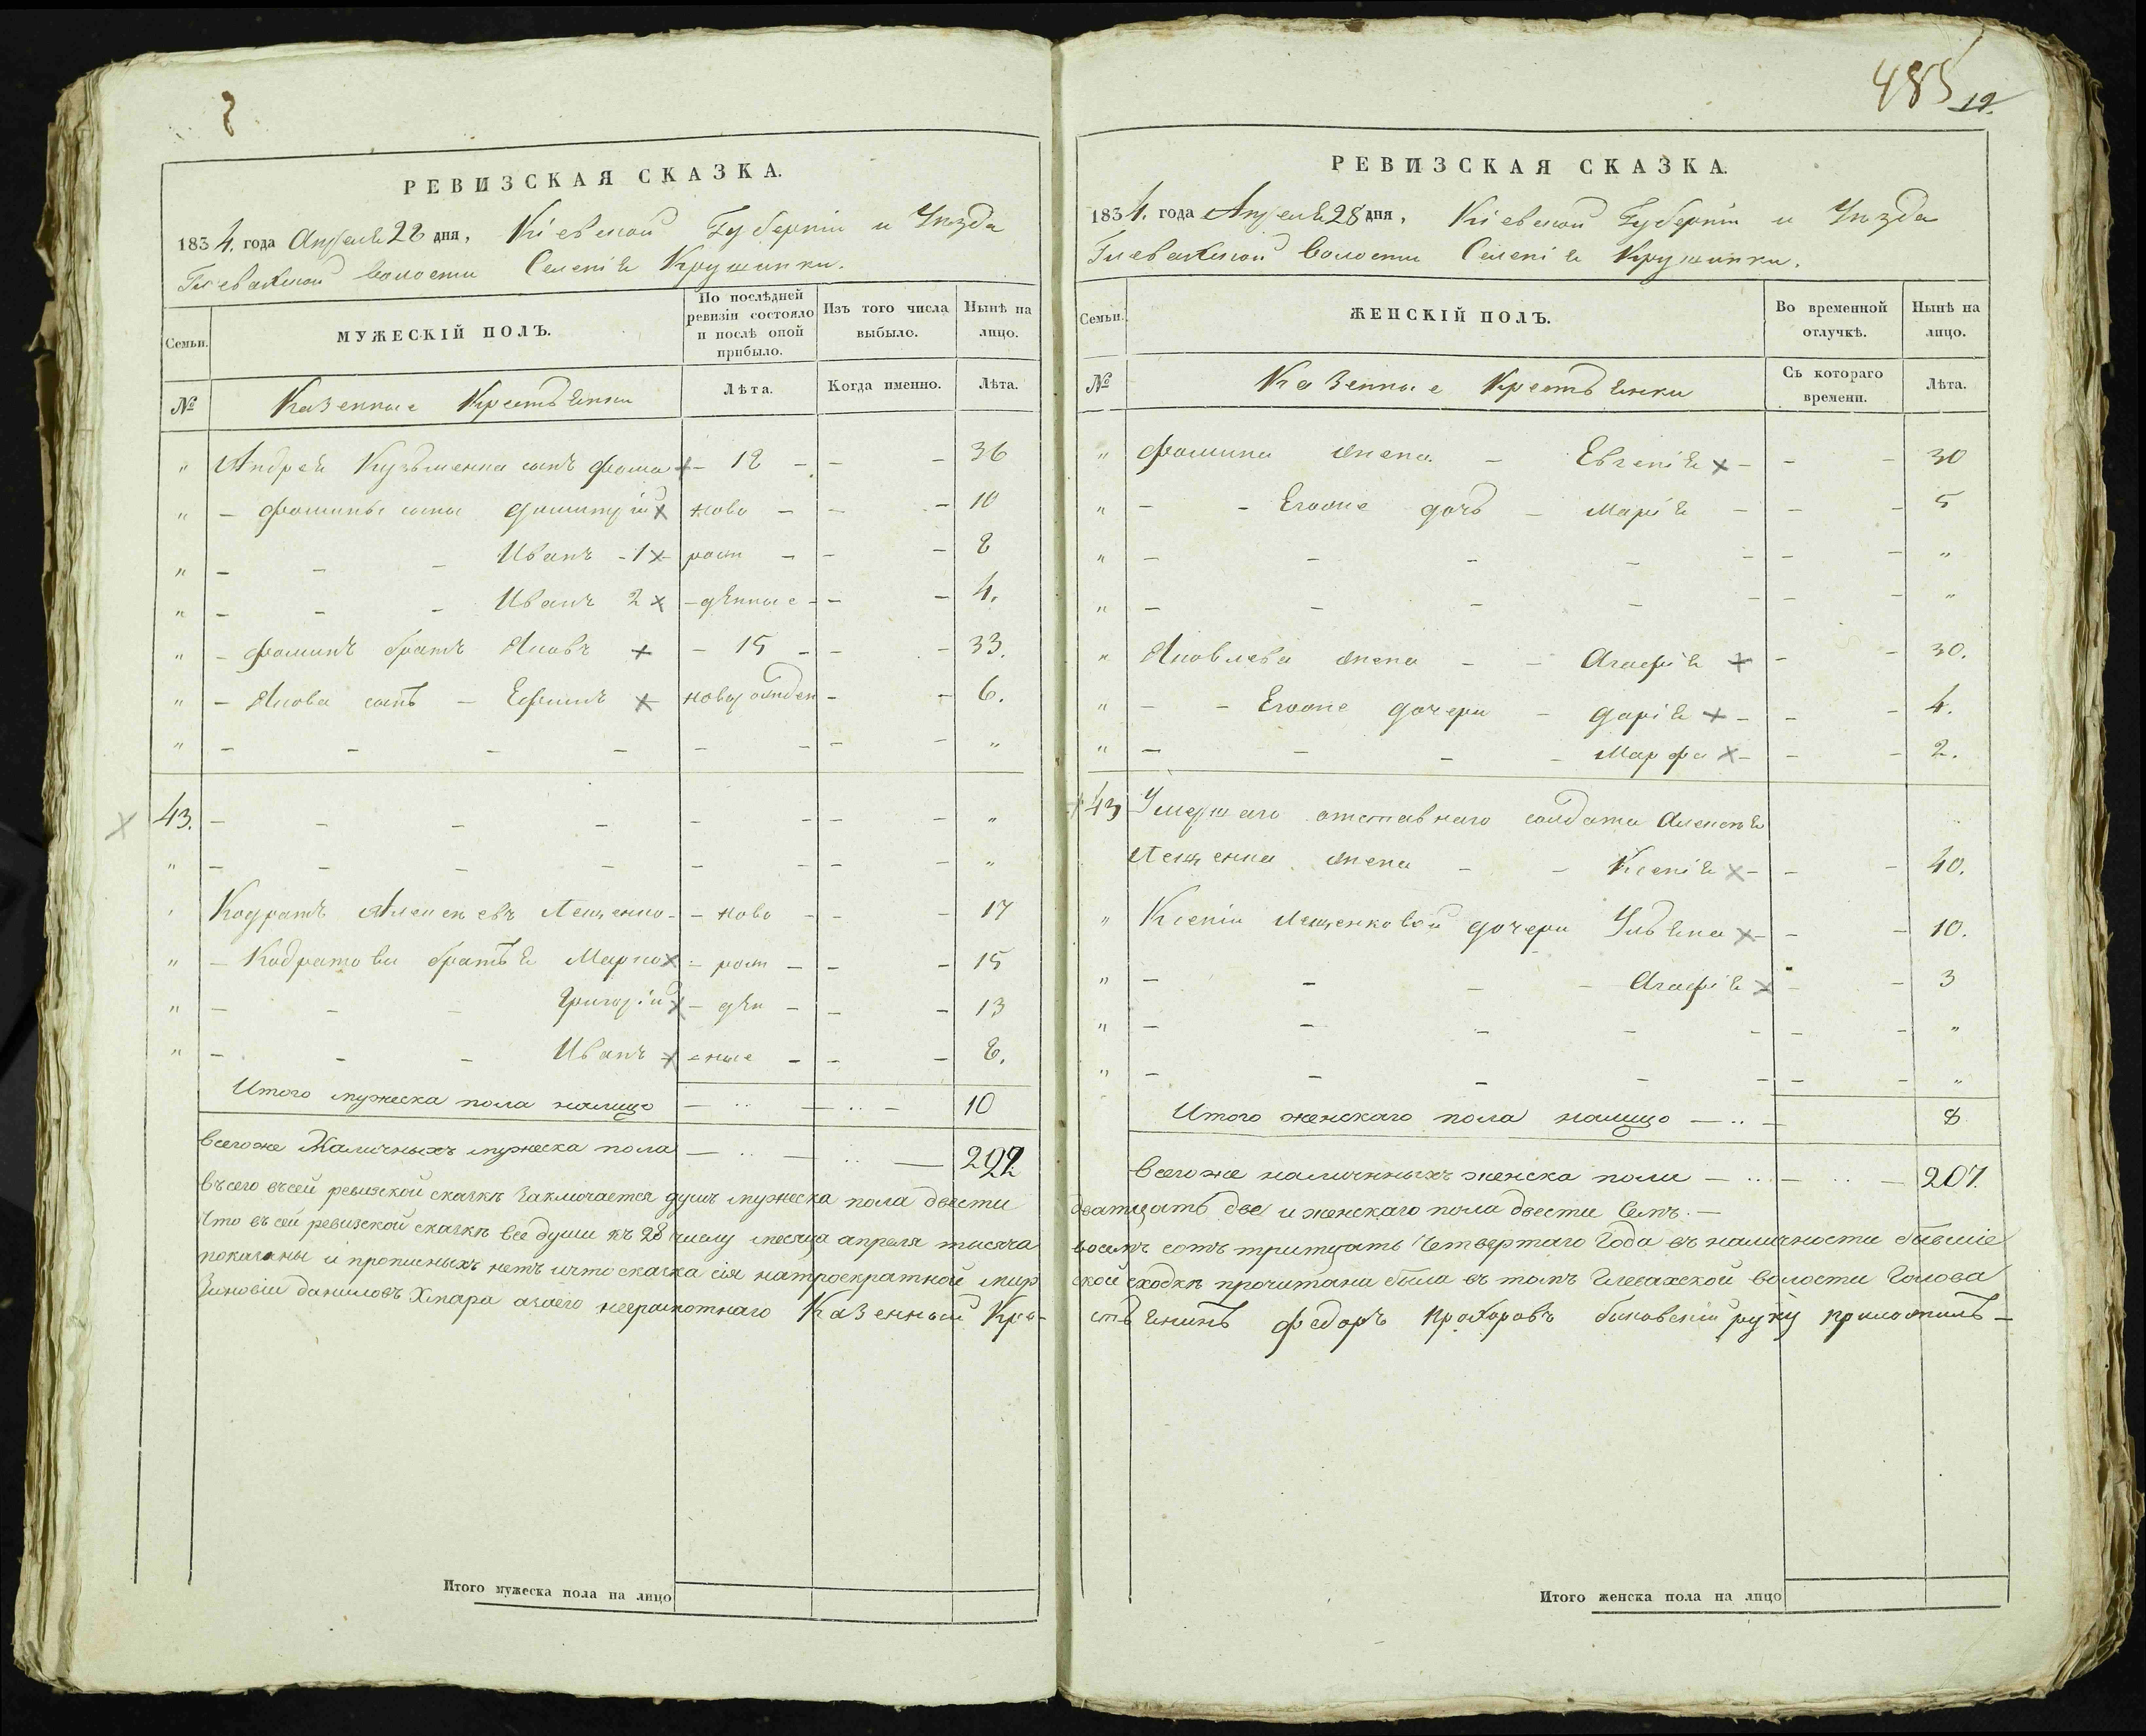 485 12.
РЕВИЗСКАЯ СКАЗКА.
1834. года Апреля 28 дня, Кіевской Губерніи и Уѣзда
Глевахской Волости Селенія Крушинки.
Семьи.
МУЖЕСКІЙ ПОЛЪ.
По послѣдней ревизіи состояло и послѣ оной прибыло.
Изъ того числа выбыло.
Нынѣ на лицо.
№ Казенные Крестьяне
Лѣта. Когда именно. Лѣта.
" Андрея Кузьменка сынъ Фома + - 18 - - - 36
" - Фомины сыны Димитрій x ново - - - 10
" - - - Иванъ - 1 x рож - - - 8
" - - - Иванъ 2 x - дѣнные - - - 4.
" - Фоминъ братъ Яковъ + - 15 - - - 33.
" - Якова сынъ - Ефимъ x новорожден - - 6.
" - - - - - - - - "
x 43. - - - - - - - - "
" - - - - - - - - "
Кодратъ Алексѣевъ Лещенко - - ново - - - 17
" - Кодратови братья Марко x - рож - - - 15
" - - - Григорій x - дѣн - - - 13
" - - - Иванъ x - ные - - - 8.
Итого мужеска пола налицо — .. — .. — 10
Всего же Наличныхъ мужеска пола — .. — .. — 222
Итого мужеска пола на лицо
РЕВИЗСКАЯ СКАЗКА.
1834. года Апреля 28 дня, Кіевской Губерніи и Уѣзда
Глевахской Волости Селенія Крушинки.
Семьи.
ЖЕНСКІЙ ПОЛЪ.
Во временной отлучкѣ.
Нынѣ на лицо.
№ Казенные Крестьянки
Съ котораго времени. Лѣта.
" Фомина жена - Евгенія x - - - 30
" - - Егоже дочь - Марія - - - 5
" - - - - - - - "
" - - - - - - - "
" Яковлева жена - - Агафія + - - 30.
" - - Егоже дочери - Дарія + - - - 4.
" - - - - Марфа x - - - 2.
+ 43 Умершаго отставнаго солдата Алексѣя
Лещенка жена - - Ксенія x - - - 40.
" Ксеніи Лещенковой дочери Ульяна x - - - 10.
" - - - - Агафія x - - 3
" - - - - - - - "
" - - - - - - - "
Итого женскаго пола налицо — .. — 8
Всего же наличныхъ женска пола — .. — .. — 207.
Всего въ сей ревизской сказкѣ Заключается душъ мужеска пола двести дватцать две и женскаго пола двести Семъ. —
Что въ сей ревизской сказкѣ все души къ 28 числу месяца апреля тысяча восемъ сотъ тритцать Четвертаго Года въ наличности бывшіе
показаны и прописныхъ нетъ ичто сказка сія натроекратной мирской сходкѣ прочитана была въ томъ Глевахской волости Голова
Зиновій даниловъ Хмара азаего неграмотнаго Казенный Крестьянинъ Федоръ Прохоровъ быковскій руку приложилъ —
Итого женска пола на лицо